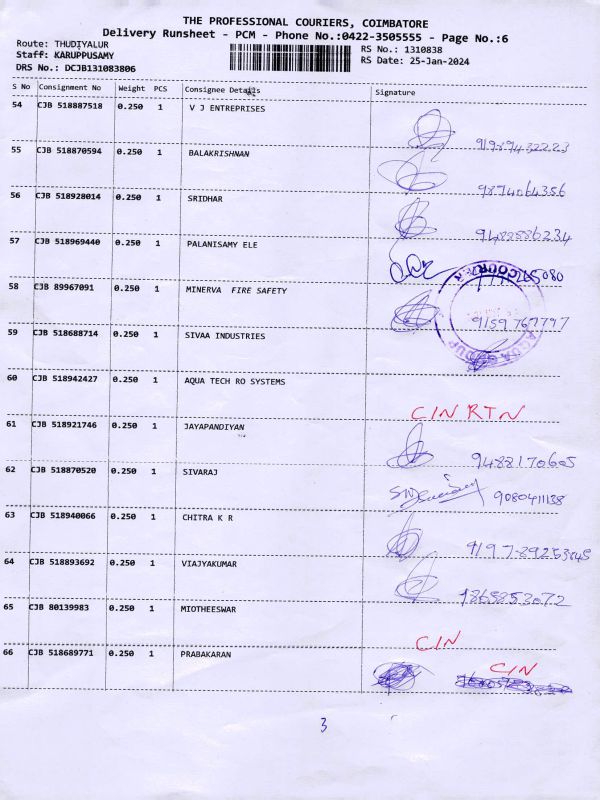 THE PROFESSIONAL COURIERS, COIMBATORE
Delivery Runsheet - PCM - Phone No.:0422-3505555 - Page No.:6
Route: THUDIYALUR
Staff: KARUPPUSAMY
DRS No.: DCJB131083806
RS No.: 1310838
RS Date: 25-Jan-2024
S No Consignment No Weight PCS Consignee Details Signature
54 CJB 518887518 0.250 1 V J ENTREPRISES
55 CJB 518870594 0.250 1 BALAKRISHNAN
56 CJB 518928014 0.250 1 SRIDHAR
57 CJB 518969440 0.250 1 PALANISAMY ELE
58 CJB 89967091 0.250 1 MINERVA FIRE SAFETY
COURIER
9159767797
59 CJB 518688714 0.250 1 SIVAA INDUSTRIES
AQUA GROUP
60 CJB 518942427 0.250 1 AQUA TECH RO SYSTEMS
CIN RTN
61 CJB 518921746 0.250 1 JAYAPANDIYAN
9488170605
62 CJB 518870520 0.250 1 SIVARAJ
9080411138
63 CJB 518940066 0.250 1 CHITRA K R
64 CJB 518893692 0.250 1 VIAJYAKUMAR
65 CJB 80139983 0.250 1 MIOTHEESWAR
CIN
66 CJB 518689771 0.250 1 PRABAKARAN
CIN
3